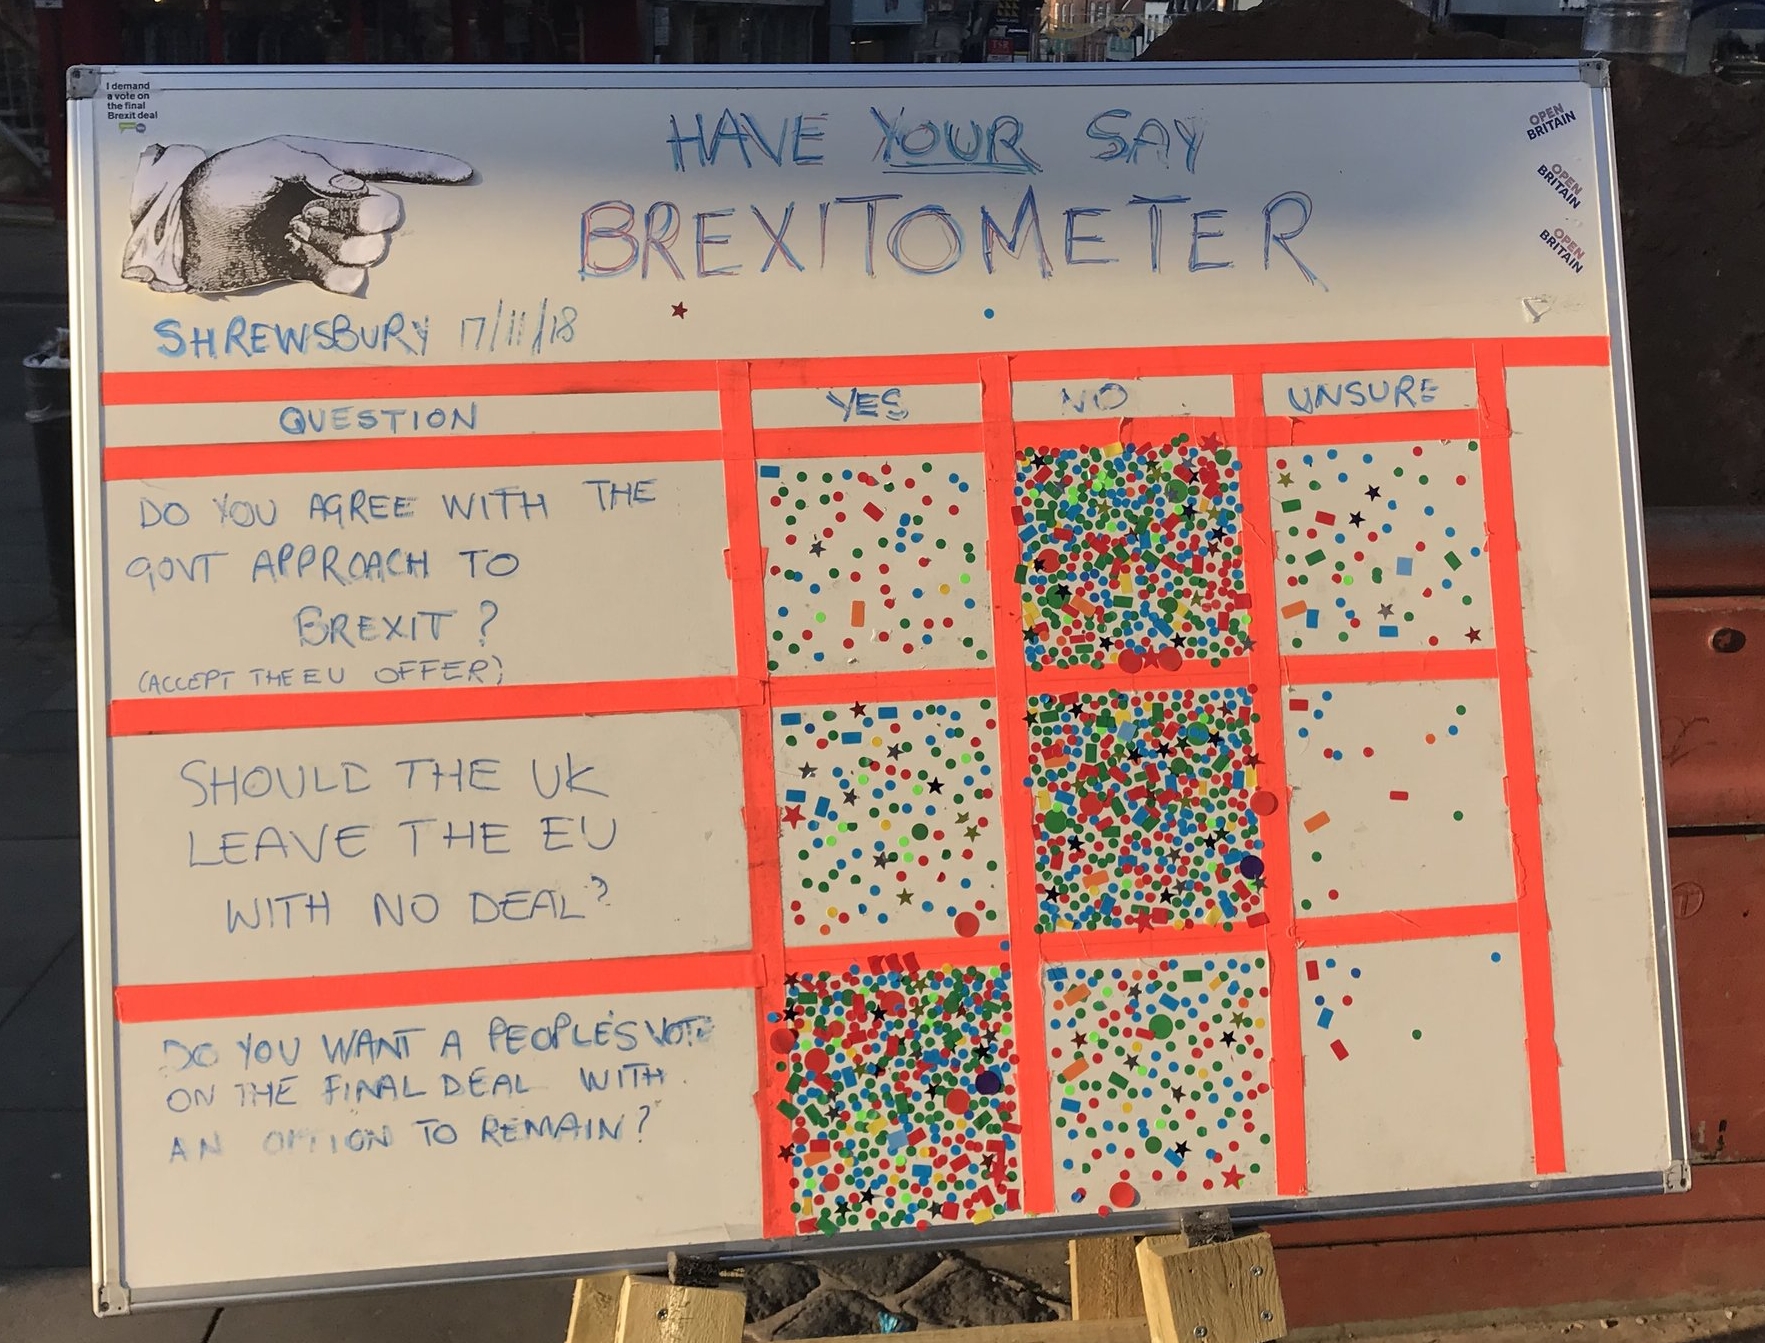 I demand
a vote on
the final
Brexit deal
HAVE YOUR SAY
BREXITOMETER
OPEN
BRITAIN
OPEN
BRITAIN
OPEN
BRITAIN
SHREWSBURY 17/11/18
QUESTION YES NO UNSURE
DO YOU AGREE WITH THE
GOVT APPROACH TO
BREXIT?
(ACCEPT THE EU OFFER)
SHOULD THE UK
LEAVE THE EU
WITH NO DEAL?
DO YOU WANT A PEOPLE'S VOTE
ON THE FINAL DEAL WITH
AN OPTION TO REMAIN?